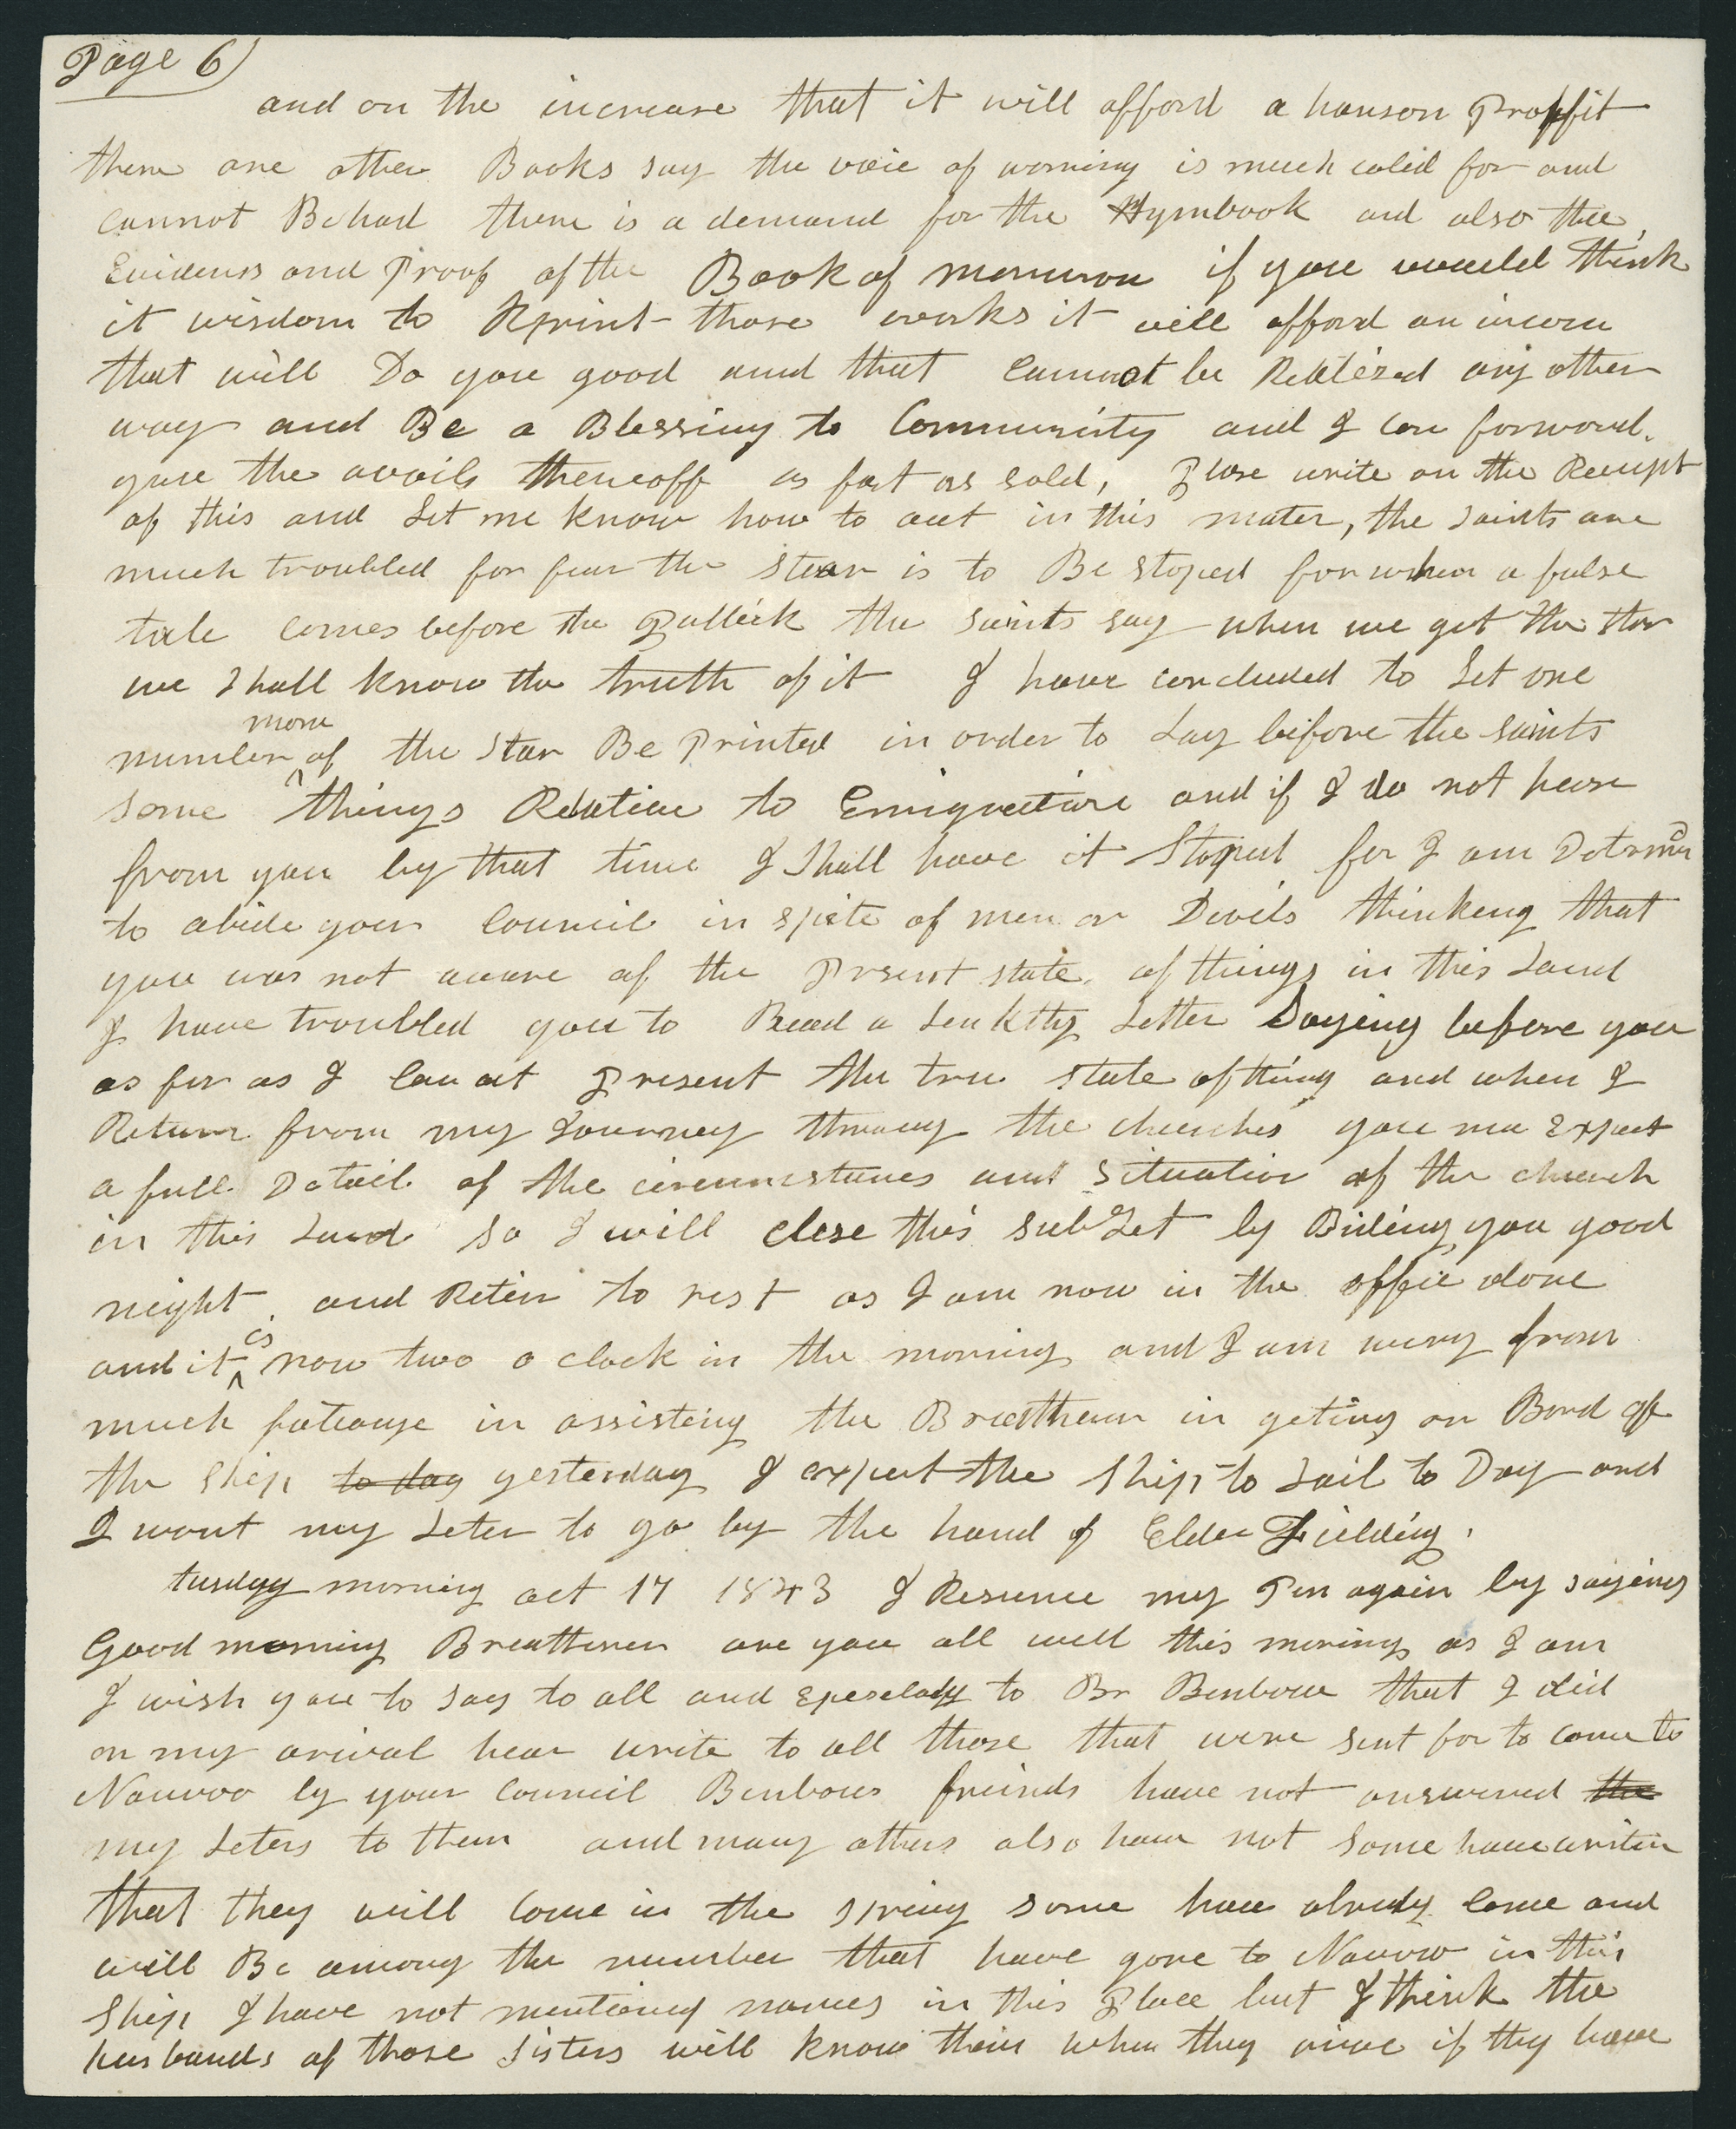 Page 6)
and on the increase that it will afford a hanson Proffit
there are other Books say the voice of worning is much caled for and
cannot Be had there is a demand for the Hymbook and also the
Evidenss and Proof of the Book of mormon if you would think
it wisdom to Reprint those works it will afford an incom
that will Do you good and that cannot be Realized any other
way and Be a Blessing to Community and I can forword
you the avails thereoff as fast as sold, Plase write on the Recept
of this and Let me know how to act in this mater, the saints are
much troubled for fear the star is to Be stoped for when a false
tale comes before the Publick the saints say when we get the star
we Shall know the truth of it I have concluded to Let one
more
number of the Star Be Printed in order to Lay before the saints
some things Relative to Emigration and if I do not hear
from you by that time I Shall have it Stoped for I am Determed
to abide your Council in spite of men or Devils thinking that
you was not aware of the Present state of things in this Land
I have troubled you to Read a Lenkthy Letter Laying before you
as far as I can at Present the true state of thing and when I
Return from my Journey throug the churches you ma Expect
a full Detail of the circumstances and situation of the church
in this Land so I will close this subJet by Biding you good
night and Retire to rest as I am now in the office alone
is
and it now two o clock in the morning and I am wery from
much fateauge in assisting the Breatheren in geting on Bord of
the Ship to day yesterday I expect the Ship to Sail to Day and
I want my Leter to go by the hand of Elder Fielding.
tusday morning oct 17 1843 I Resume my Pen again by saying
Good morning Breatheren are you all well this morning as I am
I wish you to say to all and Speselady to Br Benbow that I did
on my arival hear write to all those that were sent for to come to
Nauvoo by your council Benbows friends have not answered the
my Leters to them and many others also have not some have writen
that they will come in the spring some have alredy come and
will Be among the number that have gone to Nauvoo in this
Ship I have not mentioned names in this Place but I think the
husbands of those sisters will know them when they arive if they have